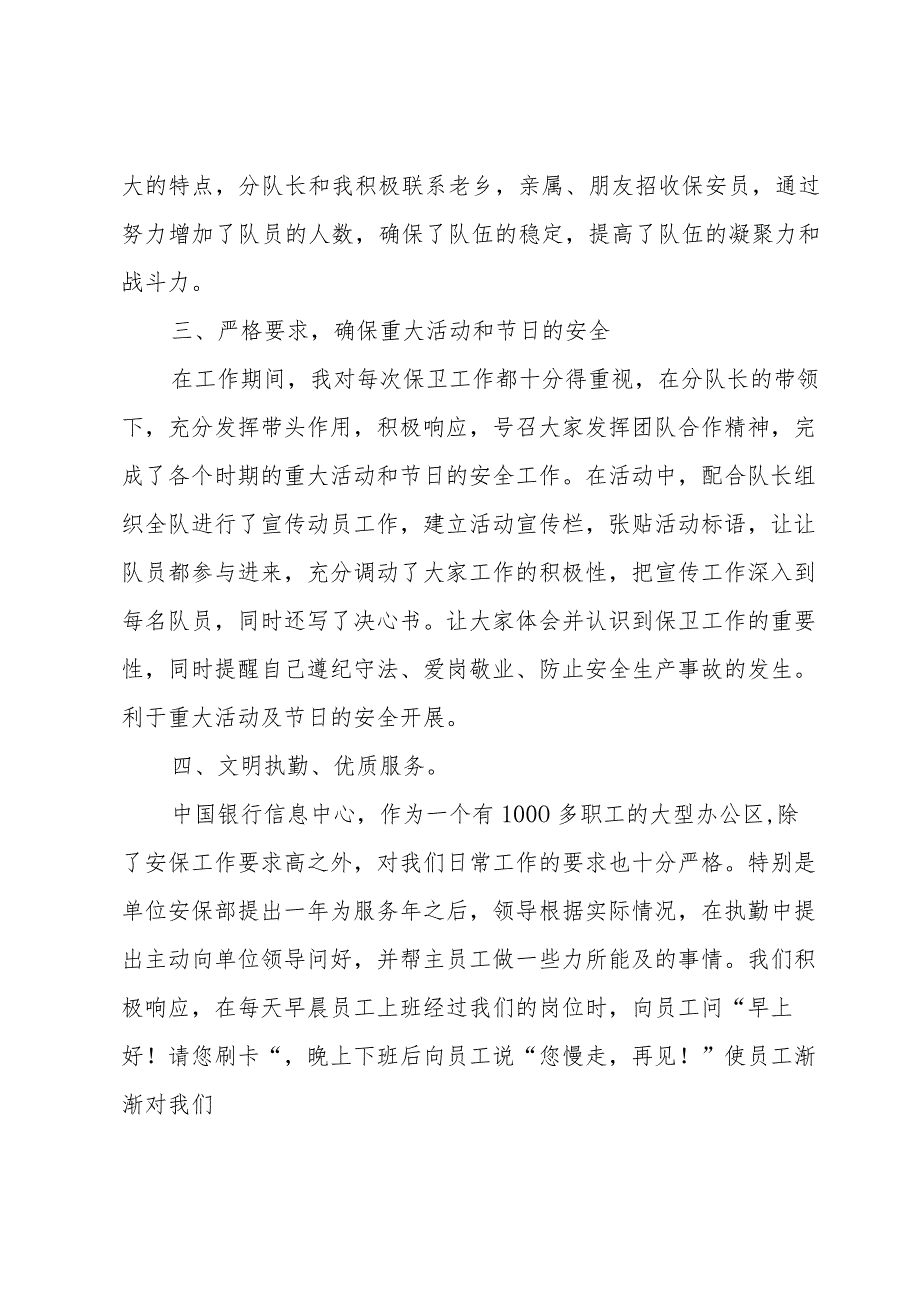 大的特点，分队长和我积极联系老乡，亲属、朋友招收保安员，通过
努力增加了队员的人数，确保了队伍的稳定，提高了队伍的凝聚力和
战斗力。
三、严格要求，确保重大活动和节日的安全
在工作期间，我对每次保卫工作都十分得重视，在分队长的带领
下，充分发挥带头作用，积极响应，号召大家发挥团队合作精神，完
成了各个时期的重大活动和节日的安全工作。在活动中，配合队长组
织全队进行了宣传动员工作，建立活动宣传栏，张贴活动标语，让让
队员都参与进来，充分调动了大家工作的积极性，把宣传工作深入到
每名队员，同时还写了决心书。让大家体会并认识到保卫工作的重要
性，同时提醒自己遵纪守法、爱岗敬业、防止安全生产事故的发生。
利于重大活动及节日的安全开展。
四、文明执勤、优质服务。
中国银行信息中心，作为一个有 1000 多职工的大型办公区,除
了安保工作要求高之外，对我们日常工作的要求也十分严格。特别是
单位安保部提出一年为服务年之后，领导根据实际情况，在执勤中提
出主动向单位领导问好，并帮主员工做一些力所能及的事情。我们积
极响应，在每天早晨员工上班经过我们的岗位时，向员工问“早上
好！请您刷卡“，晚上下班后向员工说“您慢走，再见！”使员工渐
渐对我们